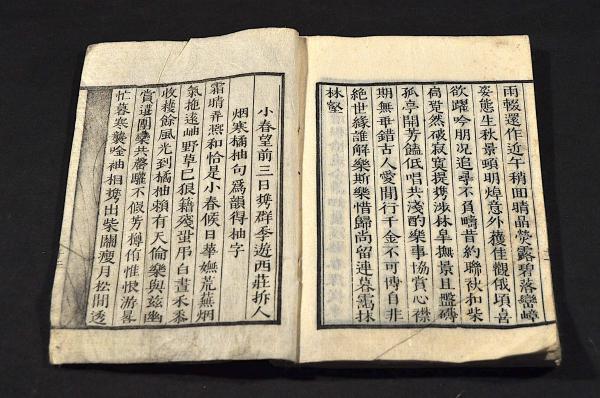 雨輟還作近午稍回晴晶熒露碧落巒嶂
姿態生秋景頓明煒意外獲佳觀俄頃喜
欲躍吟朋况追尋不負疇昔約聯袂扣柴
扃跫然破寂寞提携涉林臯撫景且盤礴
孤亭開芳饁低唱共淺酌樂事協賞心襟
期無乖錯古人愛閒行千金不可博自非
絕世緣誰解樂斯樂惜歸尚留連暮靄抹
林壑
小春望前三日携群季遊西莊拆人
烟寒橘柚句爲韻得柚字
霜晴弄燕和恰是小春候日華嫵荒蕪烟
氣拖遠岫野草已狼籍殘蛩弔白晝禾黍
收穫餘風光到橘柚賴有天倫樂與玆幽
賞遘團欒共罄驩不似芳樽侑惟恨游晷
忙暮寒襲唫袖相携出柴關瘦月松間透